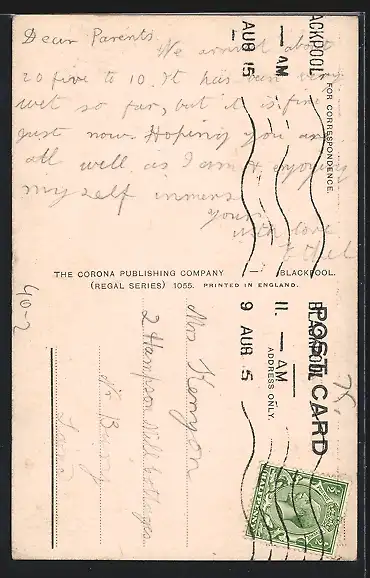 Dear Parents.
We arrived about
20 five to 10. It has been very
wet so far, but it is fine
just now. Hoping you are
all well as I am & enjoying
myself immens
yours
with love
Ethel
BLACKPOOL
AM
AUG 15
FOR CORRESPONDENCE.
THE CORONA PUBLISHING COMPANY BLACKPOOL.
(REGAL SERIES) 1055. PRINTED IN ENGLAND.
40-2
POST CARD
ADDRESS ONLY.
BLACKPOOL
11. AM
9 AUG 15
Mrs Kenyon
2 Hampson Mill Cottages
Nr Bury
Lancs